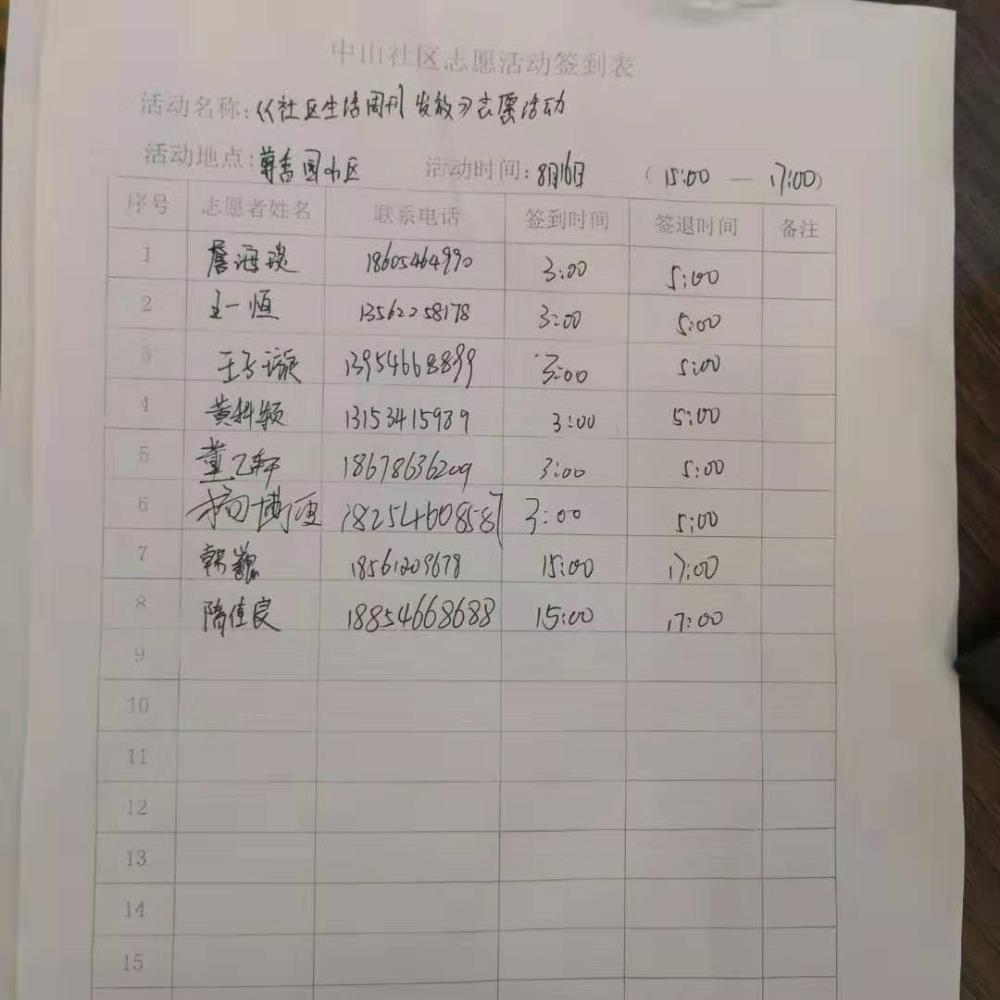 中山社区志愿活动签到表
活动名称:《社区生活周刊 发放》志愿活动
活动地点:尊香园小区 活动时间:8月16日 (15:00 — 17:00)
序号 志愿者姓名 联系电话 签到时间 签退时间 备注
1 詹海琰 18605464990 3:00 5:00
2 王一恒 13562258178 3:00 5:00
3 王子璇 13954668899 3:00 5:00
4 黄科颖 13153415989 3:00 5:00
5 董乙轩 18678636209 3:00 5:00
6 杨博 18254608587 3:00 5:00
7 韩巍 18561209678 15:00 17:00
8 隋佳良 18854668688 15:00 17:00
9
10
11
12
13
14
15